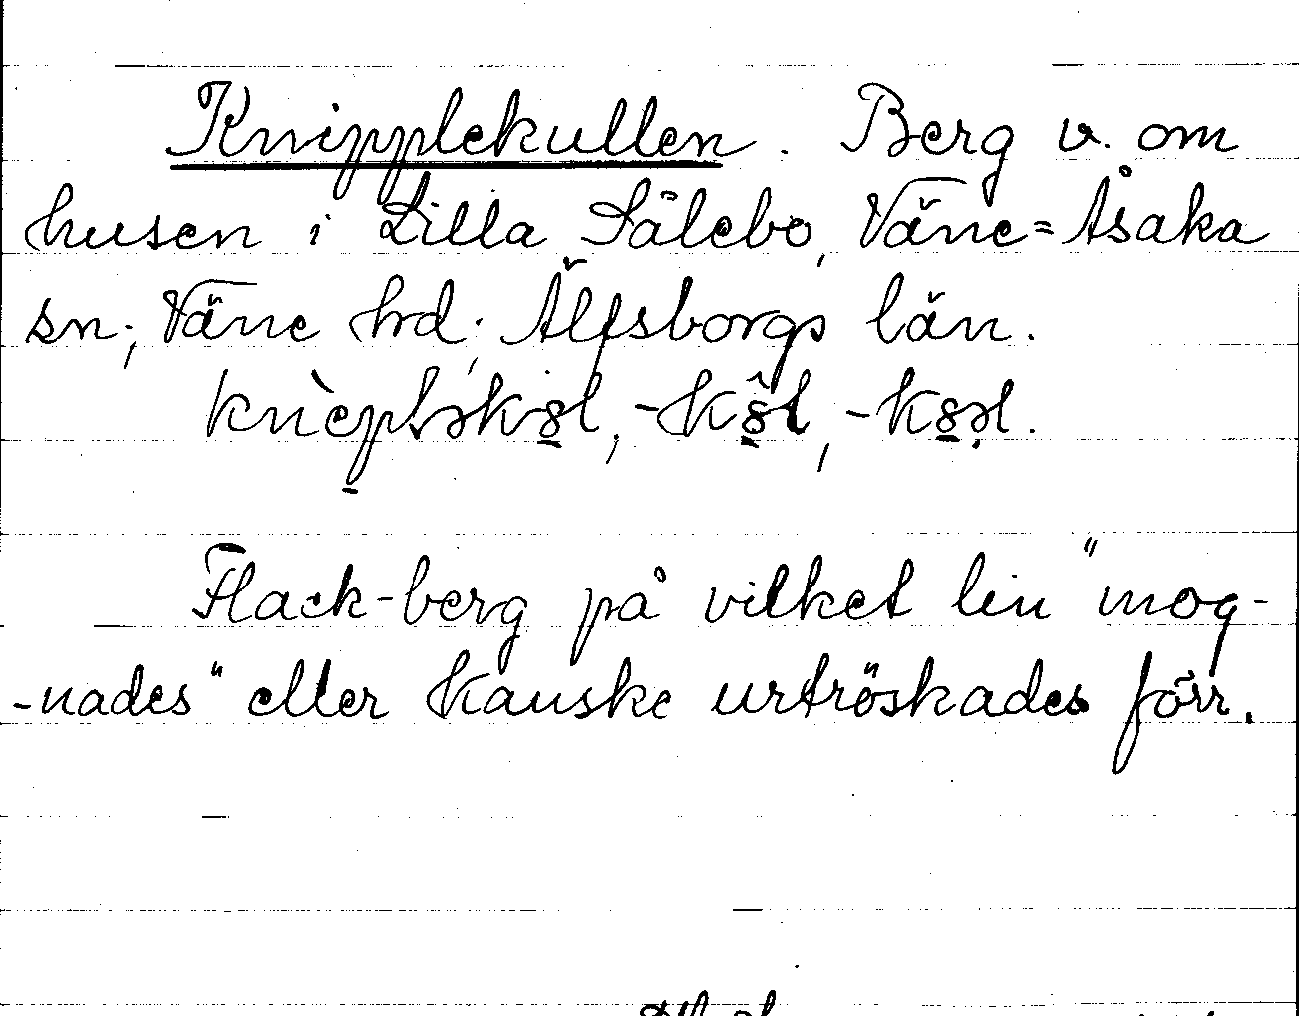 Knipplekullen. Berg v. om
husen i Lilla Sålebo, Väne=Åsaka
sn; Väne hrd; Älfsborgs län.
Flack-berg på vilket lin "mog-
-nades" eller kanske urtröskades förr.